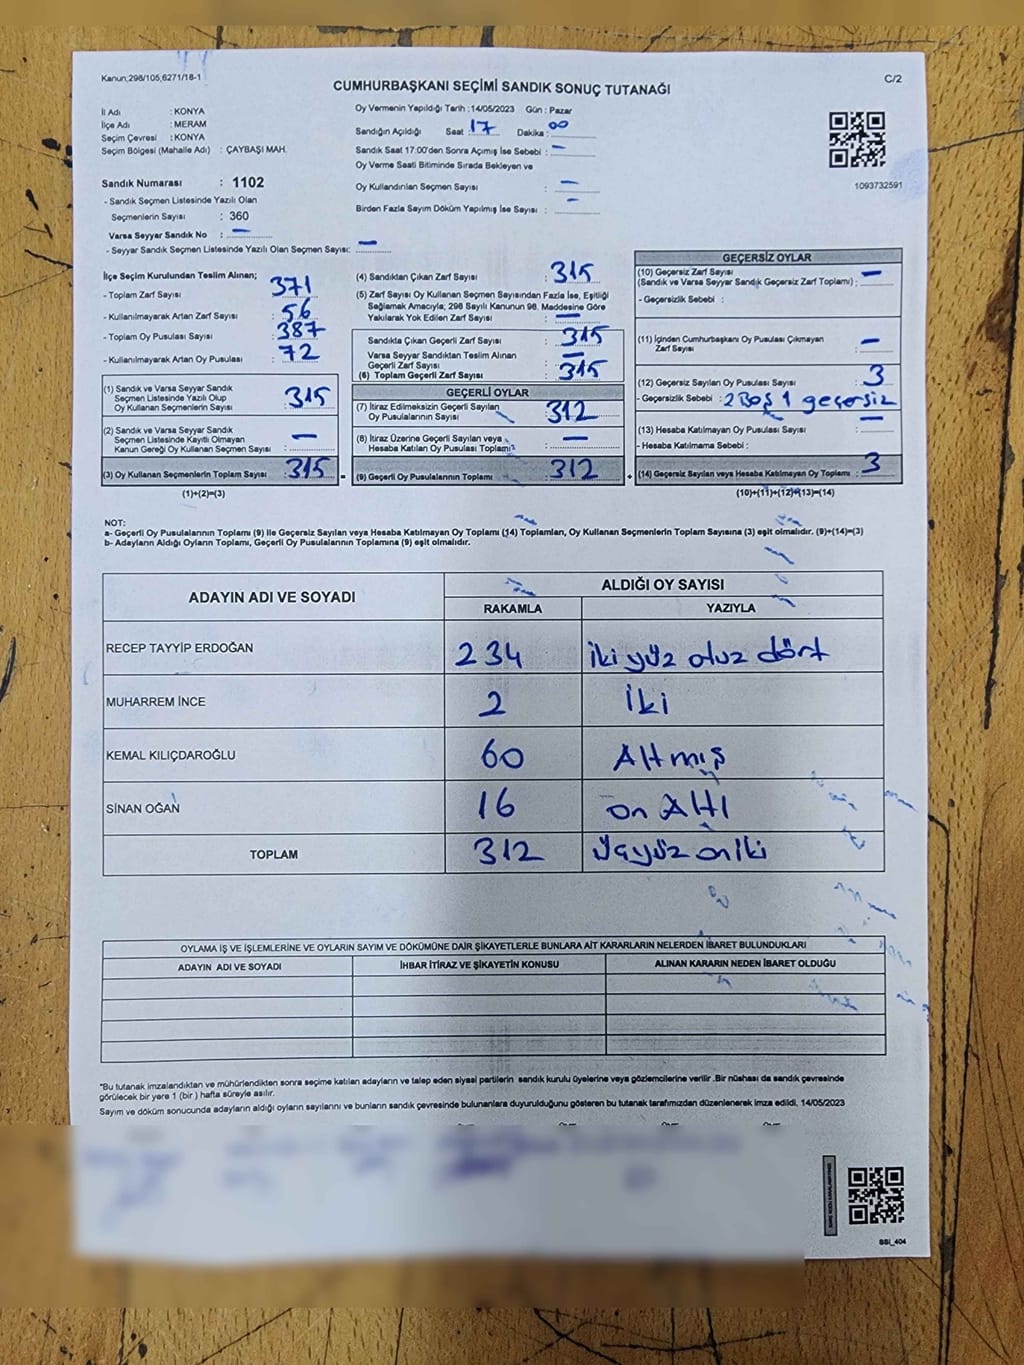 Kanun;298/105,6271/18-1
C/2
CUMHURBAŞKANI SEÇİMİ SANDIK SONUÇ TUTANAĞI
İl Adı : KONYA
İlçe Adı : MERAM
Seçim Çevresi : KONYA
Seçim Bölgesi (Mahalle Adı) : ÇAYBAŞI MAH.
Sandık Numarası : 1102
- Sandık Seçmen Listesinde Yazılı Olan
Seçmenlerin Sayısı : 360
Varsa Seyyar Sandık No : —
- Seyyar Sandık Seçmen Listesinde Yazılı Olan Seçmen Sayısı: —
Oy Vermenin Yapıldığı Tarih :14/05/2023 Gün : Pazar
Sandığın Açıldığı Saat : 17 Dakika : 00
Sandık Saat 17:00'den Sonra Açımış İse Sebebi : —
Oy Verme Saati Bitiminde Sırada Bekleyen ve
Oy Kullandırılan Seçmen Sayısı : —
Birden Fazla Sayım Döküm Yapılmış İse Sayısı : —
1093732591
İlçe Seçim Kurulundan Teslim Alınan;
- Toplam Zarf Sayısı : 371
- Kullanılmayarak Artan Zarf Sayısı : 56
- Toplam Oy Pusulası Sayısı : 387
- Kullanılmayarak Artan Oy Pusulası : 72
(1) Sandık ve Varsa Seyyar Sandık
Seçmen Listesinde Yazılı Olup
Oy Kullanan Seçmenlerin Sayısı : 315
(2) Sandık ve Varsa Seyyar Sandık
Seçmen Listesinde Kayıtlı Olmayan
Kanun Gereği Oy Kullanan Seçmen Sayısı : —
(3) Oy Kullanan Seçmenlerin Toplam Sayısı : 315
(1)+(2)=(3)
(4) Sandıktan Çıkan Zarf Sayısı : 315
(5) Zarf Sayısı Oy Kullanan Seçmen Sayısından Fazla İse, Eşitliği
Sağlamak Amacıyla; 298 Sayılı Kanunun 98. Maddesine Göre
Yakılarak Yok Edilen Zarf Sayısı : —
Sandıkta Çıkan Geçerli Zarf Sayısı : 315
Varsa Seyyar Sandıktan Teslim Alınan
Geçerli Zarf Sayısı : —
(6) Toplam Geçerli Zarf Sayısı : 315
GEÇERLİ OYLAR
(7) İtiraz Edilmeksizin Geçerli Sayılan
Oy Pusulalarının Sayısı : 312
(8) İtiraz Üzerine Geçerli Sayılan veya
Hesaba Katılan Oy Pusulası Toplamı : —
(9) Geçerli Oy Pusulalarının Toplamı : 312
GEÇERSİZ OYLAR
(10) Geçersiz Zarf Sayısı
(Sandık ve Varsa Seyyar Sandık Geçersiz Zarf Toplamı) : —
- Geçersizlik Sebebi :
(11) İçinden Cumhurbaşkanı Oy Pusulası Çıkmayan
Zarf Sayısı : —
(12) Geçersiz Sayılan Oy Pusulası Sayısı : 3
- Geçersizlik Sebebi : 2 Boş 1 geçersiz
(13) Hesaba Katılmayan Oy Pusulası Sayısı : —
- Hesaba Katılmama Sebebi :
(14) Geçersiz Sayılan veya Hesaba Katılmayan Oy Toplamı : 3
(10)+(11)+(12)+(13)=(14)
NOT:
a- Geçerli Oy Pusulalarının Toplamı (9) ile Geçersiz Sayılan veya Hesaba Katılmayan Oy Toplamı (14) Toplamları, Oy Kullanan Seçmenlerin Toplam Sayısına (3) eşit olmalıdır. (9)+(14)=(3)
b- Adayların Aldığı Oyların Toplamı, Geçerli Oy Pusulalarının Toplamına (9) eşit olmalıdır.
ADAYIN ADI VE SOYADI ALDIĞI OY SAYISI
RAKAMLA YAZIYLA
RECEP TAYYİP ERDOĞAN 234 iki yüz otuz dört
MUHARREM İNCE 2 İki
KEMAL KILIÇDAROĞLU 60 Altmış
SİNAN OĞAN 16 on Altı
TOPLAM 312 üçyüz oniki
OYLAMA İŞ VE İŞLEMLERİNE VE OYLARIN SAYIM VE DÖKÜMÜNE DAİR ŞİKAYETLERLE BUNLARA AİT KARARLARIN NELERDEN İBARET BULUNDUKLARI
ADAYIN ADI VE SOYADI İHBAR İTİRAZ VE ŞİKAYETİN KONUSU ALINAN KARARIN NEDEN İBARET OLDUĞU
*Bu tutanak imzalandıktan ve mühürlendikten sonra seçime katılan adayların ve talep eden siyasi partilerin sandık kurulu üyelerine veya gözlemcilerine verilir .Bir nüshası da sandık çevresinde
görülecek bir yere 1 (bir ) hafta süreyle asılır.
Sayım ve döküm sonucunda adayların aldığı oyların sayılarını ve bunların sandık çevresinde bulunanlara duyurulduğunu gösteren bu tutanak tarafımızdan düzenlenerek imza edildi. 14/05/2023
SSİ_404